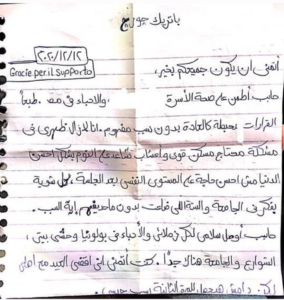 باتريك جورج
٢٠٢٠/١٢/١٢
Grazie per il supporto
أتمنى أن يكون جميعكم بخير،
حابب أطمن على صحة الأسرة والأحباء في مصر. طبعاً
القرارات محبطة كالعادة بدون سبب مفهوم. أنا لازال ظهري في
مشكلة محتاج مسكن قوي و تساعدني النوم بشكل أحسن
الدنيا مش أحسن حاجة على المستوى النفسي بعد الجلسة
بفكر في الجامعة والسنة اللي فاتت بدون ما حد يفهم إيه السبب.
حابب أوصل سلامي لكل زملائي والأحباء في بولونيا وحشني بيتي،
الشوارع والجامعة هناك جداً. كنت أتمنى أني أقضي العيد مع أهلي